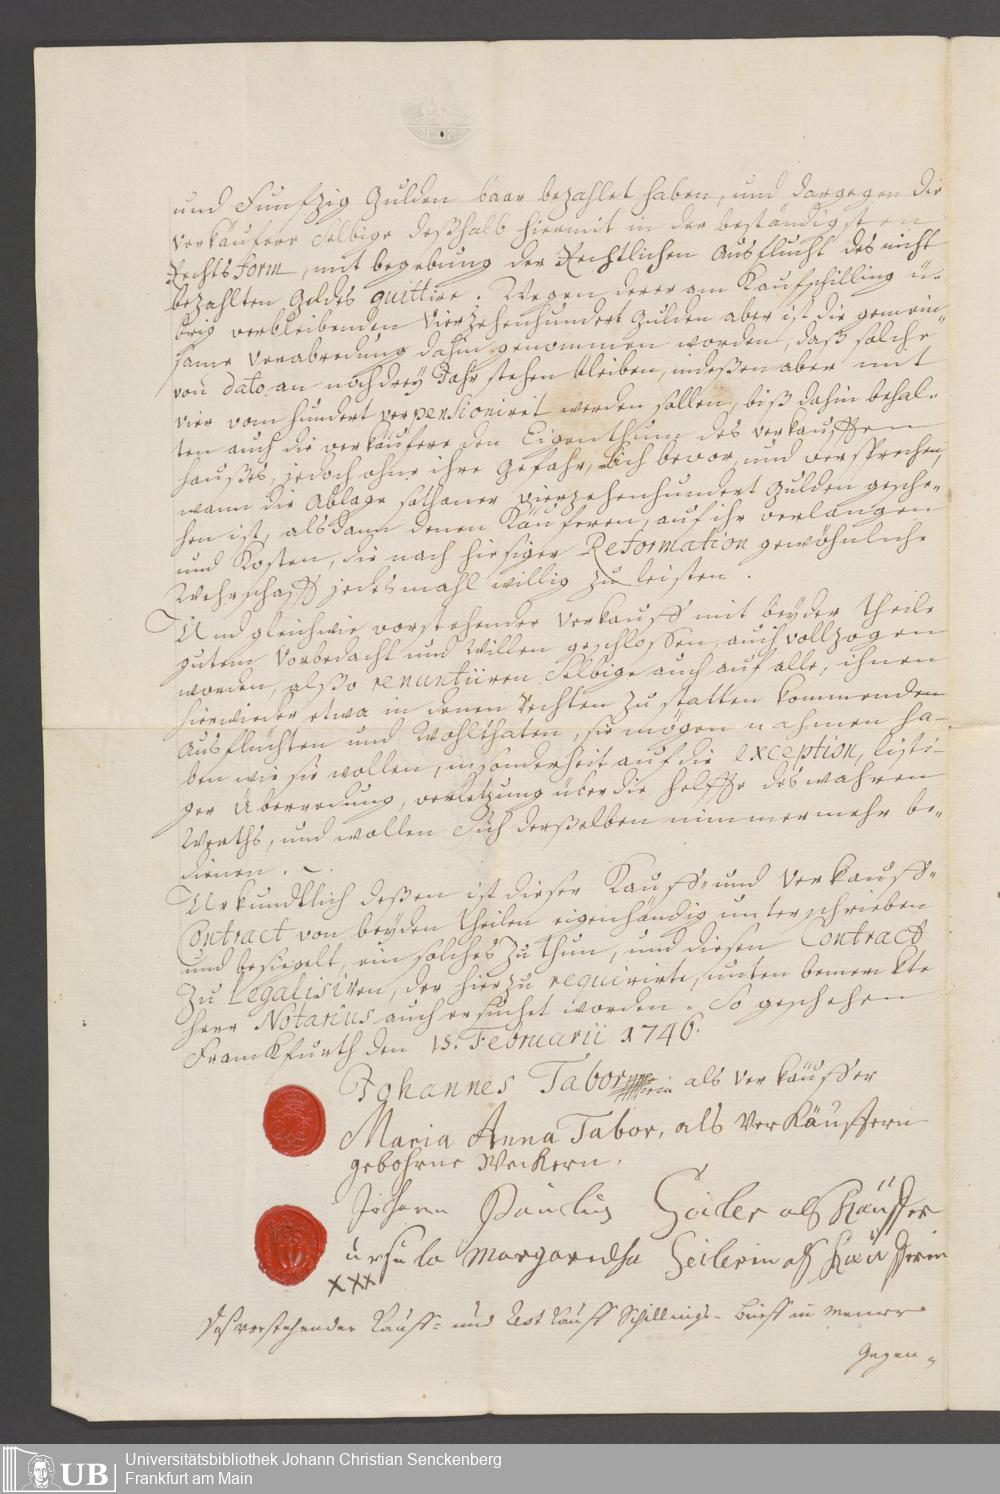 und Funfzig Gulden baar bezahlet haben, und dargegen die
Verkäufere Selbige deßhalb hiermit in der beständigsten
Rechts form, mit begebung der Rechtlichen Ausflucht des nicht
bezahlten Geldes quittire. Wegen derer am Kaufschilling ü-
brig verbleibenden Vierzehenhundert Gulden aber ist die gemein-
same Verabredung dahin genommen worden, daß solche
von dato an noch drey Jahr stehen bleiben, indeßen aber mit
vier vom hundert verpensioniret werden sollen, biß dahin behal-
ten auch die verkäufere den Eigenthum des verkaufften
haußes, jedoch ohne ihre gefahr, sich bevor, und versprechen,
wann die Ablage sothaner vierzehenhundert Gulden gesche-
hen ist, alsdann denen Käuferen, auf ihr verlangen
und Kosten, die nach hiesiger Reformation gewöhnliche
Wehrschafft jedesmahl willig zu leisten.
Und gleichwie vorstehender Verkauff mit beyder theile
gutem Vorbedacht und Willen geschlossen, auch vollzogen
worden, alßo renuntiiren Selbige auch auf alle, ihnen
hierwieder etwa in denen Rechten zu statten kommenden
Ausflüchten und Wohlthaten, sie mögen nahmen ha-
ben wie sie wollen, insonderheit auf die exception, listi-
ger Überredung, verletzung über die helffte des wahren
Werths, und wollen Sich derßelben nimmermehr be-
dienen.
Urkundtlich deßen ist dieser Kauff- und Verkauff-
Contract von beyden theilen eigenhändig unterschrieben
und besiegelt, ein solches zu thun, und diesen Contract
zu Legalisiren, der hierzu requirirte, unten bemerckte
Herr Notarius auch ersuchet worden. So geschehen
Franckfurth den 15. Februarii 1746.
Johannes Tabor als Verkäuffer
Maria Anna Tabor, als Verkäufferin
gebohrne Weckern.
Johann Paulus Seiler als Käuffer
ursula Margaredha Seilerin als Käufferin
xxx
Daß vorstehender Kauff- und Rest Kauff Schillings-Brieff in meiner
Gegen-
UB
Universitätsbibliothek Johann Christian Senckenberg
Frankfurt am Main